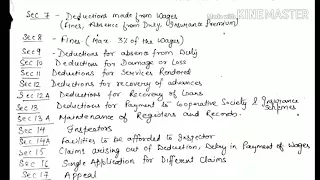 Made with
KINEMASTER
Sec 7 - Deductions made from Wages
(Fines, Absence from Duty, Insurance Premium)
Sec 8 - Fines (Max. 3% of the Wages)
Sec 9 - Deductions for absence from Duty
Sec 10 Deductions for Damage or Loss
Sec 11 Deductions for Services Rendered
Sec 12 Deductions for recovery of advances
Sec 12A Deductions for Recovery of Loans
Sec 13 Deductions for Payment to Cooperative Society & Insurance
Schemes
Sec 13A Maintenance of Registers and Records.
Sec 14 Inspectors
Sec 14A Facilities to be afforded to Inspector
Sec 15 Claims arising out of Deduction, Delay in Payment of Wages
Sec 16 Single Application for Different Claims
Sec 17 Appeal